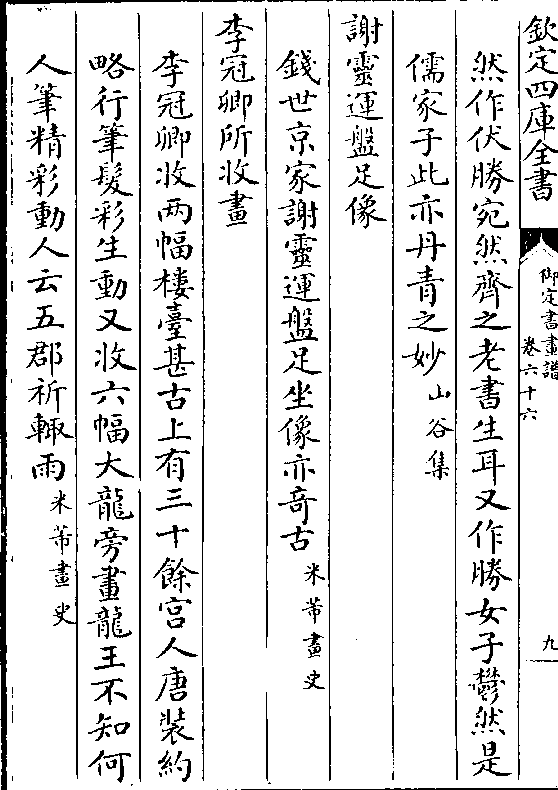 欽定四庫全書
御定書畫譜
卷六十六
九
然作伏勝宛然齊之老書生耳又作勝女子鬱然是
儒家子此亦丹青之妙山谷集
謝靈運盤足像
錢世京家謝靈運盤足坐像亦奇古米芾畫史
李冠卿所收畫
李冠卿收两幅樓臺甚古上有三十餘宫人唐裝約
略行筆髮彩生動又收六幅大龍旁畫龍王不知何
人筆精彩動人云五郡祈輙雨米芾畫史